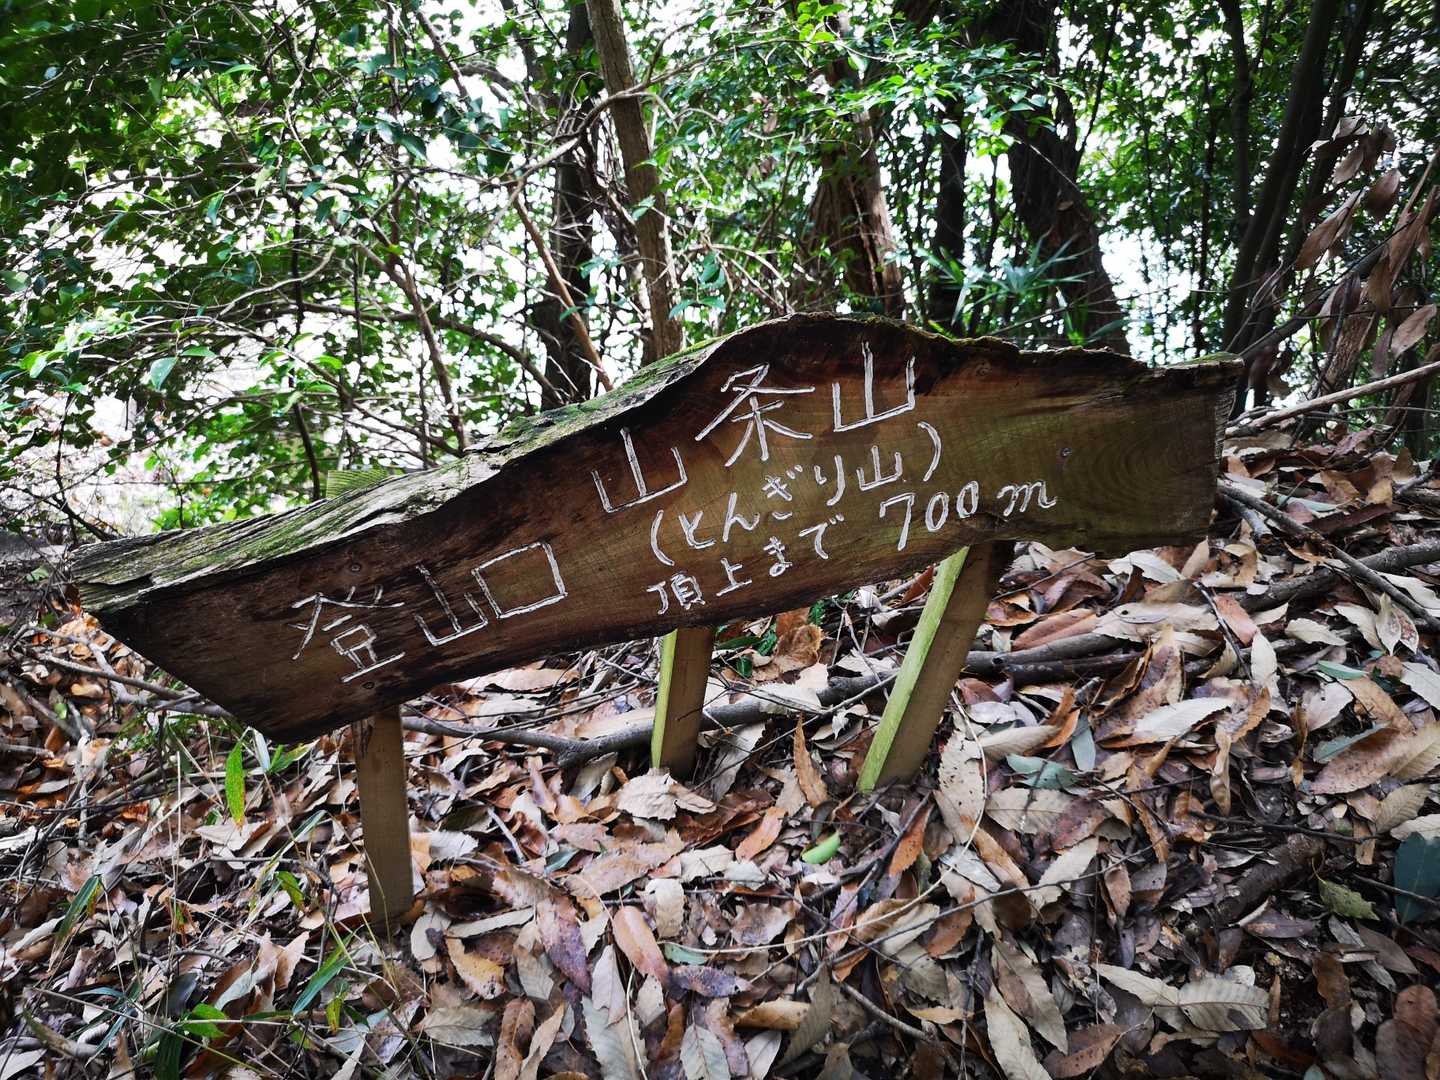 山条山
(とんぎり山)
登山口
頂上まで 700m